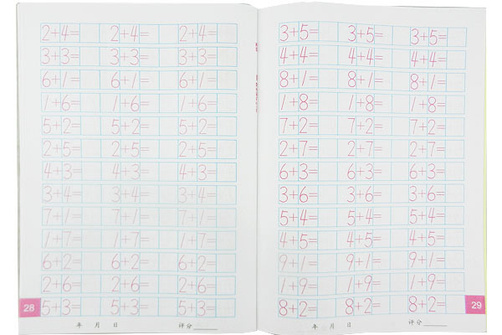 2+4= 2+4= 2+4=
3+3= 3+3= 3+3=
6+1= 6+1= 6+1=
1+6= 1+6= 1+6=
5+2= 5+2= 5+2=
2+5= 2+5= 2+5=
4+3= 4+3= 4+3=
3+4= 3+4= 3+4=
7+1= 7+1= 7+1=
1+7= 1+7= 1+7=
6+2= 6+2= 6+2=
2+6= 2+6= 2+6=
5+3= 5+3= 5+3=
28
年 月 日 评分
3+5= 3+5= 3+5=
4+4= 4+4= 4+4=
8+1= 8+1= 8+1=
1+8= 1+8= 1+8=
7+2= 7+2= 7+2=
2+7= 2+7= 2+7=
6+3= 6+3= 6+3=
3+6= 3+6= 3+6=
5+4= 5+4= 5+4=
4+5= 4+5= 4+5=
9+1= 9+1= 9+1=
1+9= 1+9= 1+9=
8+2= 8+2= 8+2=
29
年 月 日 评分